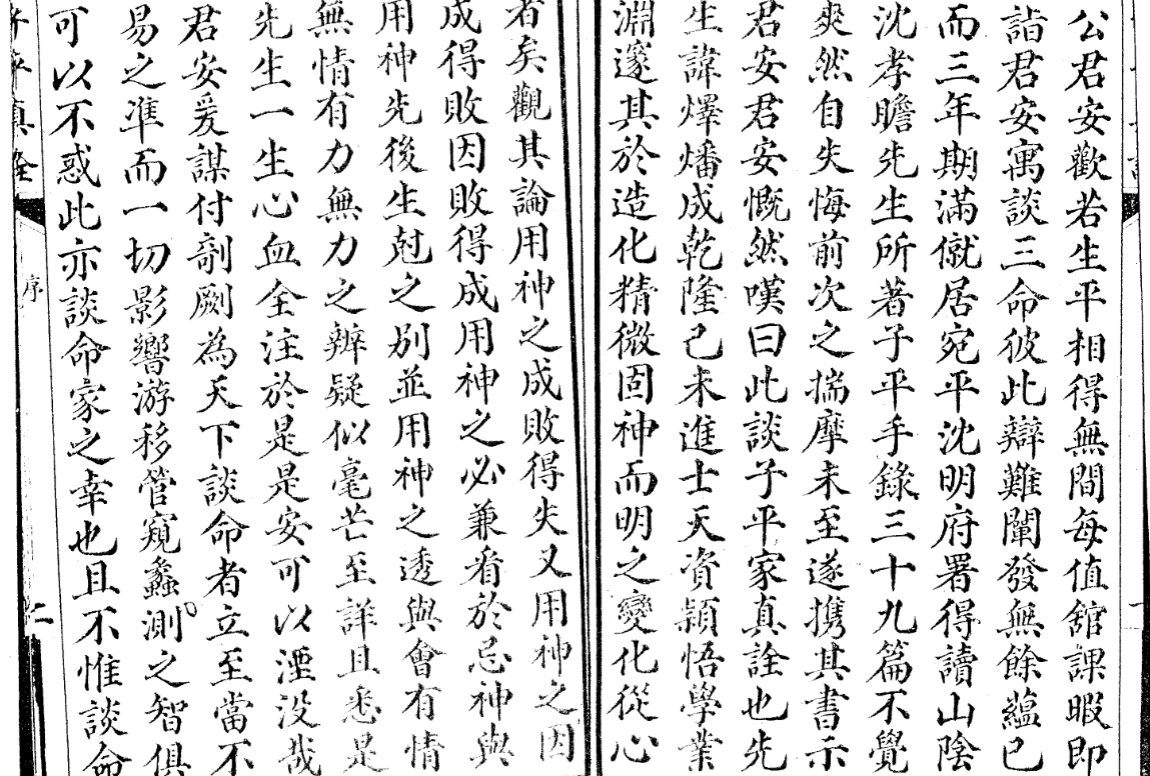 公君安歡若生平相得無間每值舘課暇即
詣君安寓談三命彼此辯難闡發無餘蘊已
而三年期滿僦居宛平沈明府署得讀山陰
沈孝瞻先生所著子平手錄三十九篇不覺
爽然自失悔前次之揣摩未至遂携其書示
君安君安慨然嘆曰此談子平家真詮也先
生諱燡燔成乾隆己未進士天資穎悟學業
淵邃其於造化精微固神而明之變化從心
者矣觀其論用神之成敗得失又用神之因
成得敗因敗得成用神之必兼看於忌神與
用神先後生尅之别並用神之透與會有情
無情有力無力之辨疑似毫芒至詳且悉是
先生一生心血全注於是是安可以湮没哉
君安爰謀付剞劂為天下談命者立至當不
易之凖而一切影響游移管窺蠡測之智俱
可以不惑此亦談命家之幸也且不惟談命
子平真詮
序
二